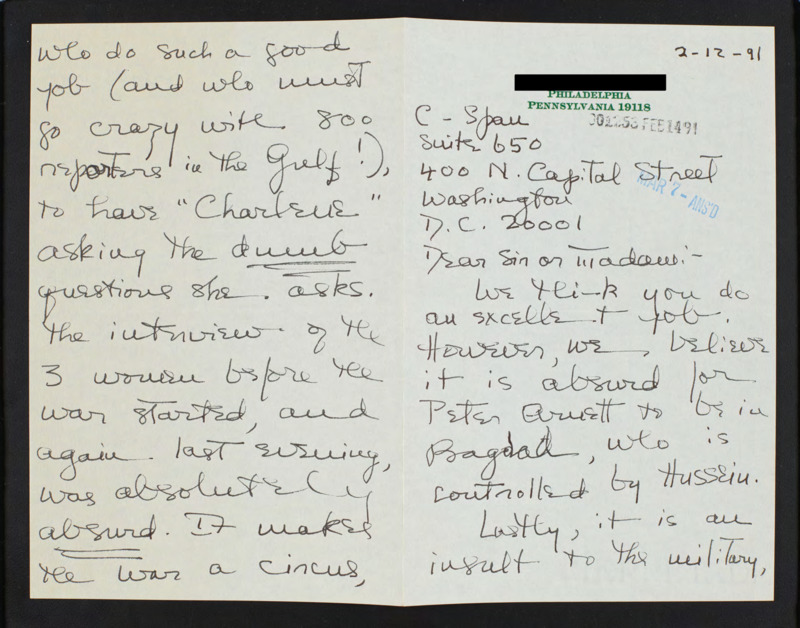 2-12-91
PHILADELPHIA
PENNSYLVANIA 19118
FEB 14 91
C-Span
Suite 650
400 N. Capital Street
MAR 7 - ANS'D
Washington
D.C. 20001
Dear Sir or Madam:-
We think you do
an excellent job.
However, we believe
it is absurd for
Peter Arnett to be in
Bagdad, who is
controlled by Hussein.
Lastly, it is an
insult to the military,
who do such a good
job (and who must
go crazy with 800
reporters in the Gulf!),
to have "Charlene"
asking the dumb
questions she asks.
The interview of the
3 women before the
war started, and
again last evening,
was absolutely
absurd. It makes
the war a circus,